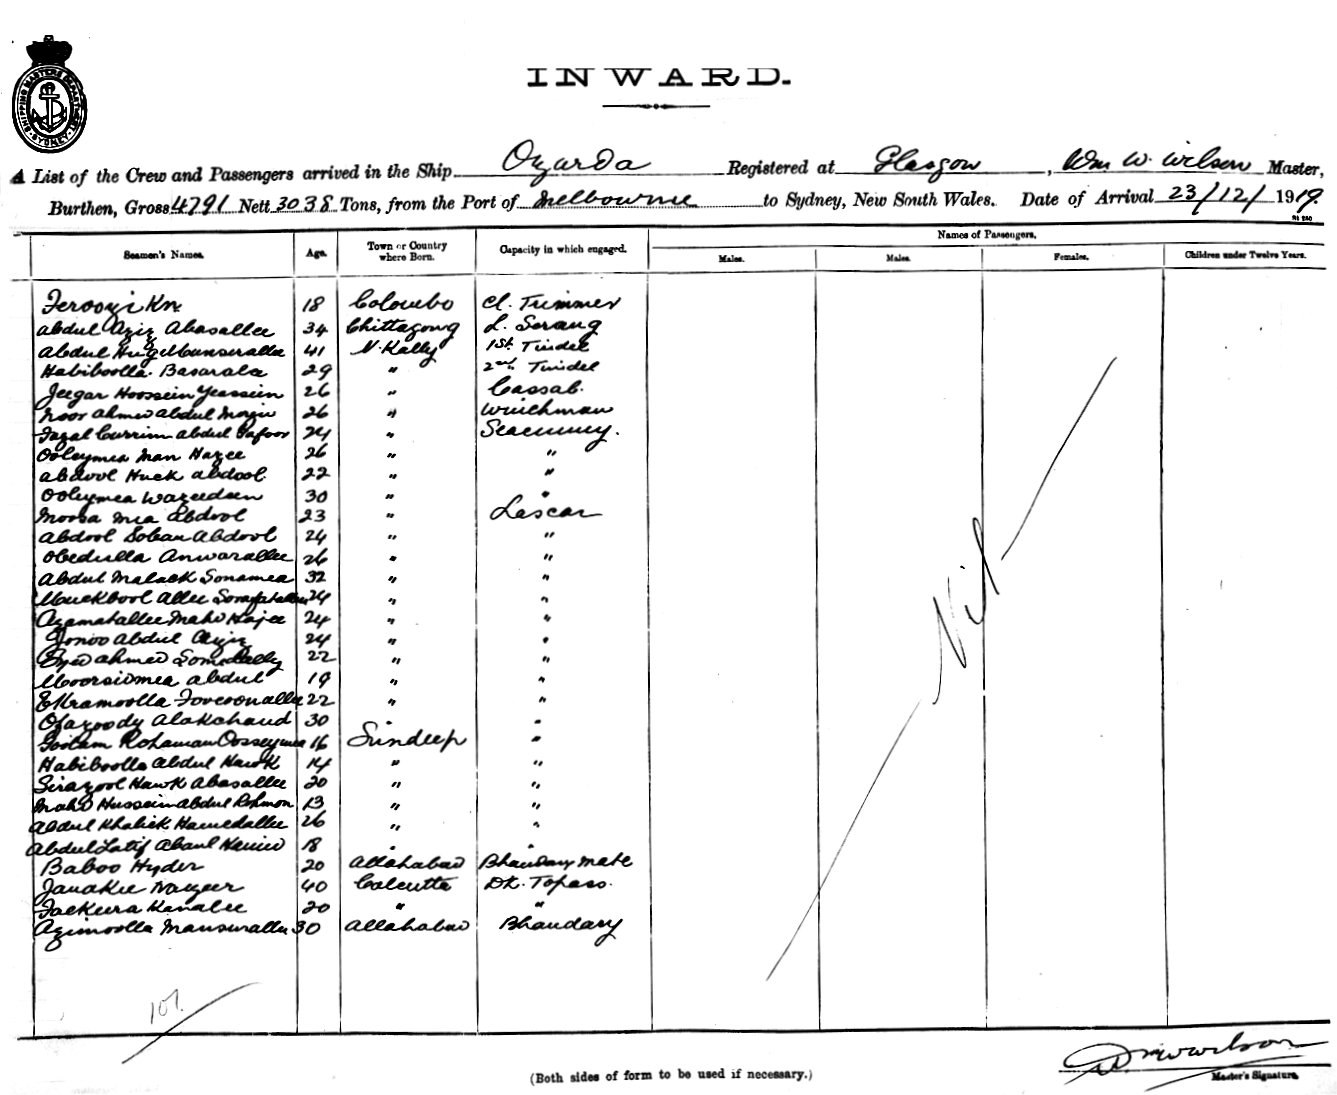 SHIPPING MASTERS DEPARTMENT SYDNEY
INWARD.
A List of the Crew and Passengers arrived in the Ship Ozarda Registered at Glasgow, Wm W. Wilson Master,
Burthen, Gross 4791 Nett 3038 Tons, from the Port of Melbourne to Sydney, New South Wales. Date of Arrival 23/12/1919.
Seamen's Names. Age. Town or Country where Born. Capacity in which engaged. Names of Passengers.
Males. Males. Females. Children under Twelve Years.
18 Colombo Cl. Trimmer
Abdul Aziz Abasallee 34 Chittagong L. Serang
Abdul Munserallee 41 N. Kally 1st Tindel
Habiboolla Basarala 29 " 2nd Tindel
Jeegar Hoossein Yeassein 26 " Cassab.
Noor Ahmed Abdul 26 " Winchman
Fazal Currim Abdul Gafoor 24 " Seacunny.
Ooleymea Man Hazee 26 " "
Abdool Huck Abdool 22 " "
Ooleymea Wazeedeen 30 " "
Moosa Mea Abdool 23 " Lascar
Abdool Soban Abdool 24 " "
Obedulla Anwarallee 26 " "
Abdul Malack Sonamea 32 " "
Muckbool Allee 24 " "
Azamatallee Mahd Hajee 24 " "
Abdul Aziz 24 " "
Ahmed 22 " "
Abdul 19 " "
Ekramoolla 22 " "
Alakchand 30 " "
Goolam Rohaman Oosseymea 16 Sundeep "
Habiboolla Abdul Hawk 14 " "
Serazool Hawk Abasallee 20 " "
Mahd Hussein Abdul Rohmon 13 " "
Abdul Khalick Hamedallee 26 " "
Abdul Latif 18 " "
Baboo Hyder 20 Allahabad Bhandary Mate
40 Calcutta Dk. Topass.
20 " "
Azimoolla Mansurallee 30 Allahabad Bhandary
Nil
107.
Wm W Wilson
Master's Signature.
(Both sides of form to be used if necessary.)